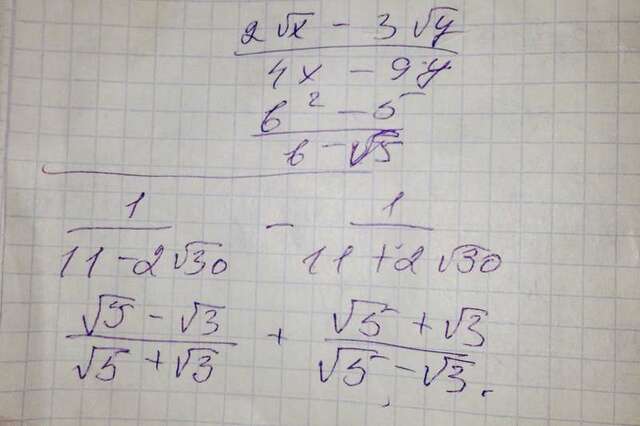 2√x - 3√y
4x - 9y
b² - 5
b - √5
1 - 1
11 - 2√30 11 + 2√30
√5 - √3 + √5 + √3
√5 + √3 √5 - √3.